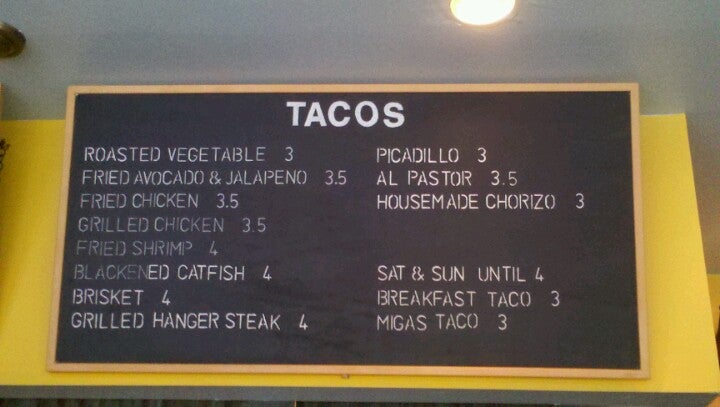 TACOS
ROASTED VEGETABLE 3
FRIED AVOCADO & JALAPENO 3.5
FRIED CHICKEN 3.5
GRILLED CHICKEN 3.5
FRIED SHRIMP 4
BLACKENED CATFISH 4
BRISKET 4
GRILLED HANGER STEAK 4
PICADILLO 3
AL PASTOR 3.5
HOUSEMADE CHORIZO 3
SAT & SUN UNTIL 4
BREAKFAST TACO 3
MIGAS TACO 3